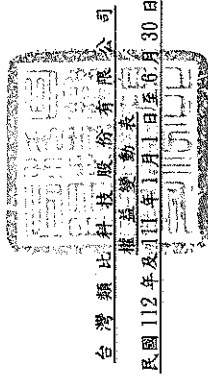 台灣類比科技股份有限公司
權益變動表
民國112年及111年1月1日至6月30日